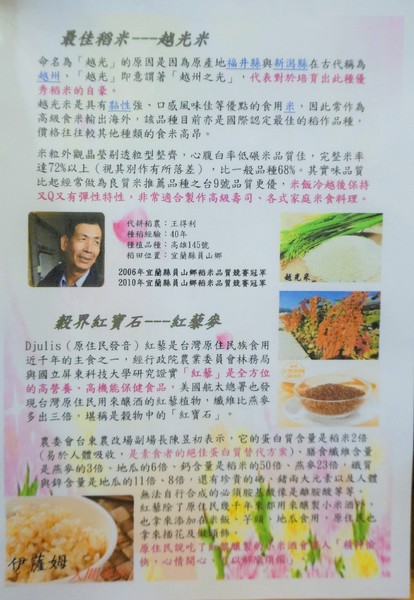 最佳稻米---越光米
命名為「越光」的原因是因為原產地福井縣與新潟縣在古代稱為
越州，「越光」即意謂著「越州之光」，代表對於培育出此種優
秀稻米的自豪。
越光米是具有黏性強、口感風味佳等優點的食用米，因此常作為
高級食米輸出海外，該品種目前亦是國際認定最佳的稻作品種，
價格往往較其他種類的食米高昂。
米粒外觀晶瑩剔透粒型整齊，心腹白率低碾米品質佳，完整米率
達72%以上（視其別作有所落差），比一般品種68%。其食味品質
比起經常做為良質米推薦品種之台9號品質更優，米飯冷越後保持
又Q又有彈性特性，非常適合製作高級壽司、各式家庭米食料理。
代耕稻農：王得利
種稻經驗：40年
種植品種：高雄145號
稻田位置：宜蘭縣員山鄉
2006年宜蘭縣員山鄉稻米品質競賽冠軍
2010年宜蘭縣員山鄉稻米品質競賽冠軍
越光米
穀界紅寶石---紅藜參
Djulis（原住民發音）紅藜是台灣原住民族食用
近千年的主食之一，經行政院農業委員會林務局
與國立屏東科技大學研究證實「紅藜」是全方位
的高營養、高機能保健食品，美國航太總署也發
現台灣原住民用來釀酒的紅藜植物，纖維比燕麥
多出三倍，堪稱是穀物中的「紅寶石」。
農委會台東農改場副場長陳昱初表示，它的蛋白質含量是稻米2倍
（易於人體吸收，是素食者的絕佳蛋白質替代方案）、膳食纖維含量
是燕麥的3倍、地瓜的6倍、鈣含量是稻米的50倍、燕麥23倍，鐵質
與鋅含量是地瓜的11倍、8倍，還有珍貴的硒、鍺兩大元素以及人體
無法自行合成的必須胺基酸像是離胺酸等等。
紅藜除了原住民幾千年來都用來釀製小米酒
也拿來添加在米飯、芋頭、地瓜食用，原住民也
拿來插花及做頭飾。
原住民說吃了紅藜釀製的小米酒會讓人「精神愉
快，心情開心，可以解除煩惱」
伊薩姆